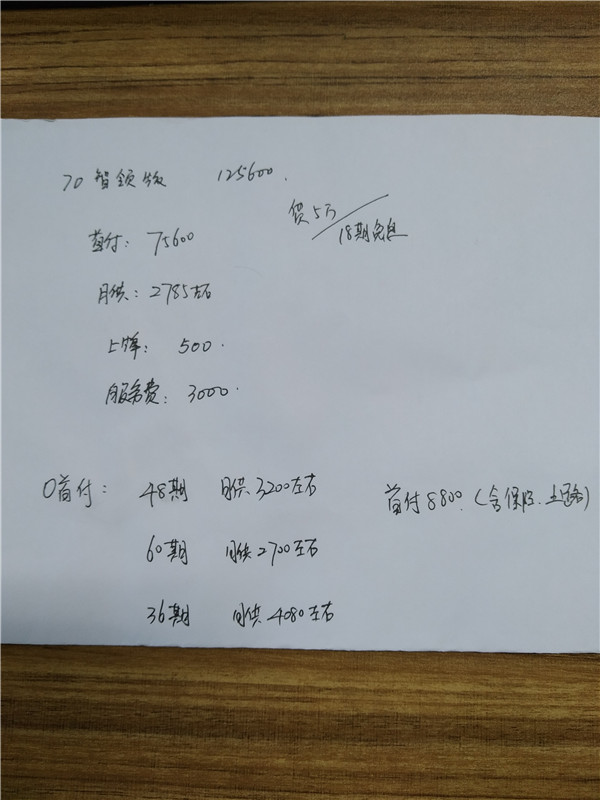 70智领版 125600.
贷5万/18期免息
首付: 75600
月供: 2785左右
上牌: 500.
服务费: 3000.
0首付: 48期 月供3200左右 首付8800.(含保险.上路)
60期 月供2700左右
36期 月供4080左右